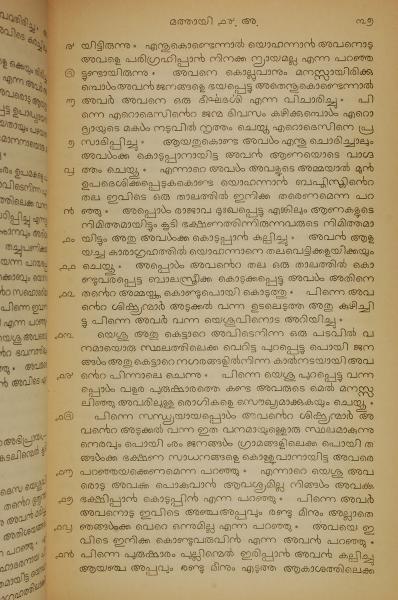 മത്തായി ൧൪. അ. ൩൭
൪ യിട്ടിരുന്നു • എന്തുകൊണ്ടെന്നാൽ യൊഹന്നാൻ അവനൊടു
അവളെ പരിഗ്രഹിപ്പാൻ നിനക്ക ന്യായമല്ല എന്ന പറഞ്ഞി
൫ ട്ടുണ്ടായിരുന്നു • അവനെ കൊല്ലുവാനും മനസ്സായിരിക്കു
മ്പൊൾ അവൻ ജനങ്ങളെ ഭയപ്പെട്ടു അതെന്തുകൊണ്ടെന്നാൽ
൬ അവർ അവനെ ഒരു ദീർഘദർശി എന്ന വിചാരിച്ചു • പി
ന്നെ എറൊദെസിൻറ ജന്മ ദിവസം കഴിക്കുമ്പൊൾ എറൊ
ദ്യായുടെ മകൾ നടുവിൽ നൃത്തം ചെയ്തു എറൊദെസിനെ പ്ര
൭ സാദിപ്പിച്ചു • ആയതുകൊണ്ട അവൾ എന്തു ചൊദിച്ചാലും
അവൾക്ക കൊടുപ്പാനായിട്ട അവൻ ആണയൊടെ വാഗ്ദ
൮ ത്തം ചെയ്തു • എന്നാറെ അവൾ അവളുടെ അമ്മയാൽ മുൻ
ഉപദെശിക്കപ്പെട്ടകൊണ്ട യൊഹന്നാൻ ബപ്തിസ്തിൻറ
തല ഇവിടെ ഒരു താലത്തിൽ ഇനിക്ക തരെണമെന്ന പറ
൯ ഞ്ഞു • അപ്പൊൾ രാജാവ ദുഃഖപ്പെട്ടു എങ്കിലും ആണകളുടെ
നിമിത്തമായിട്ടും കൂടി ഭക്ഷണത്തിന്നിരുന്നവരുടെ നിമിത്തമാ
൧൦ യിട്ടും അതു അവൾക്ക കൊടുപ്പാൻ കല്പിച്ചു • അവൻ ആള
യച്ച കാരാഗൃഹത്തിൽ യൊഹന്നാനെ തലവെട്ടിക്കളയിക്കയും
൧൧ ചെയ്തു • അപ്പൊൾ അവൻറ തല ഒരു താലത്തിൽ കൊ
ണ്ടുവരപ്പെട്ട ബാലസ്ത്രീക്ക കൊടുക്കപ്പെട്ടു അവൾ അതിനെ
൧൨ തൻറ അമ്മയ്ക്ക കൊണ്ടുപൊയി കൊടുത്തു • പിന്നെ അവ
ൻറ ശിഷ്യന്മാർ അടുക്കൽ വന്ന ഉടലെടുത്ത അതു കുഴിച്ചി
ട്ടു പിന്നെ അവർ വന്ന യെശുവിനൊട അറിയിച്ചു •
൧൩ യെശു അതു കെട്ടാറെ അവിടെനിന്ന ഒരു പടവിൽ വ
നമായൊരു സ്ഥലത്തിലെക്ക വെറിട്ടു പുറപ്പെട്ടു പൊയി ജന
ങ്ങൾ അതു കെട്ടാറെ നഗരങ്ങളിൽനിന്ന കാൽനടയായി അവ
൧൪ ൻറ പിന്നാലെ ചെന്നു • പിന്നെ യെശു പുറപ്പെട്ടു വന്ന
പ്പൊൾ വളര പുരുഷാരത്തെ കണ്ട അവരുടെ മെൽ മനസ്സ
ലിഞ്ഞു അവരിലുള്ള രൊഗികളെ സൌഖ്യമാക്കുകയും ചെയ്തു •
൧൫ പിന്നെ സന്ധ്യയായപ്പൊൾ അവൻറ ശിഷ്യന്മാർ അ
വൻറ അടുക്കൽ വന്ന ഇത വനമായുള്ളൊരു സ്ഥലമാകുന്നു
നെരവും പൊയി ൟ ജനങ്ങൾ ഗ്രാമങ്ങളിലെക്ക പൊയി ത
ങ്ങൾക്ക ഭക്ഷണ സാധനങ്ങളെ കൊള്ളുവാനായിട്ട അവരെ
൧൬ പറഞ്ഞയക്കെണമെന്ന പറഞ്ഞു • എന്നാറെ യെശു അവ
രൊടു അവർക്ക പൊകുവാൻ ആവശ്യമില്ല നിങ്ങൾ അവർക്ക
൧൭ ഭക്ഷിപ്പാൻ കൊടുപ്പിൻ എന്ന പറഞ്ഞു • പിന്നെ അവർ
അവനൊടു ഇവിടെ അഞ്ചഅപ്പവും രണ്ടു മീനും അല്ലാതെ
൧൮ ഞങ്ങൾക്ക വെറെ ഒന്നുമില്ല എന്ന പറഞ്ഞു • അവയെ ഇ
വിടെ ഇനിക്ക കൊണ്ടുവരുവിൻ എന്ന അവൻ പറഞ്ഞു •
൧൯ പിന്നെ പുരുഷാരം പുല്ലിന്മെൽ ഇരിപ്പാൻ അവൻ കല്പിച്ചു
ആയഞ്ചു അപ്പവും രണ്ടു മീനും എടുത്ത ആകാശത്തിലെക്ക